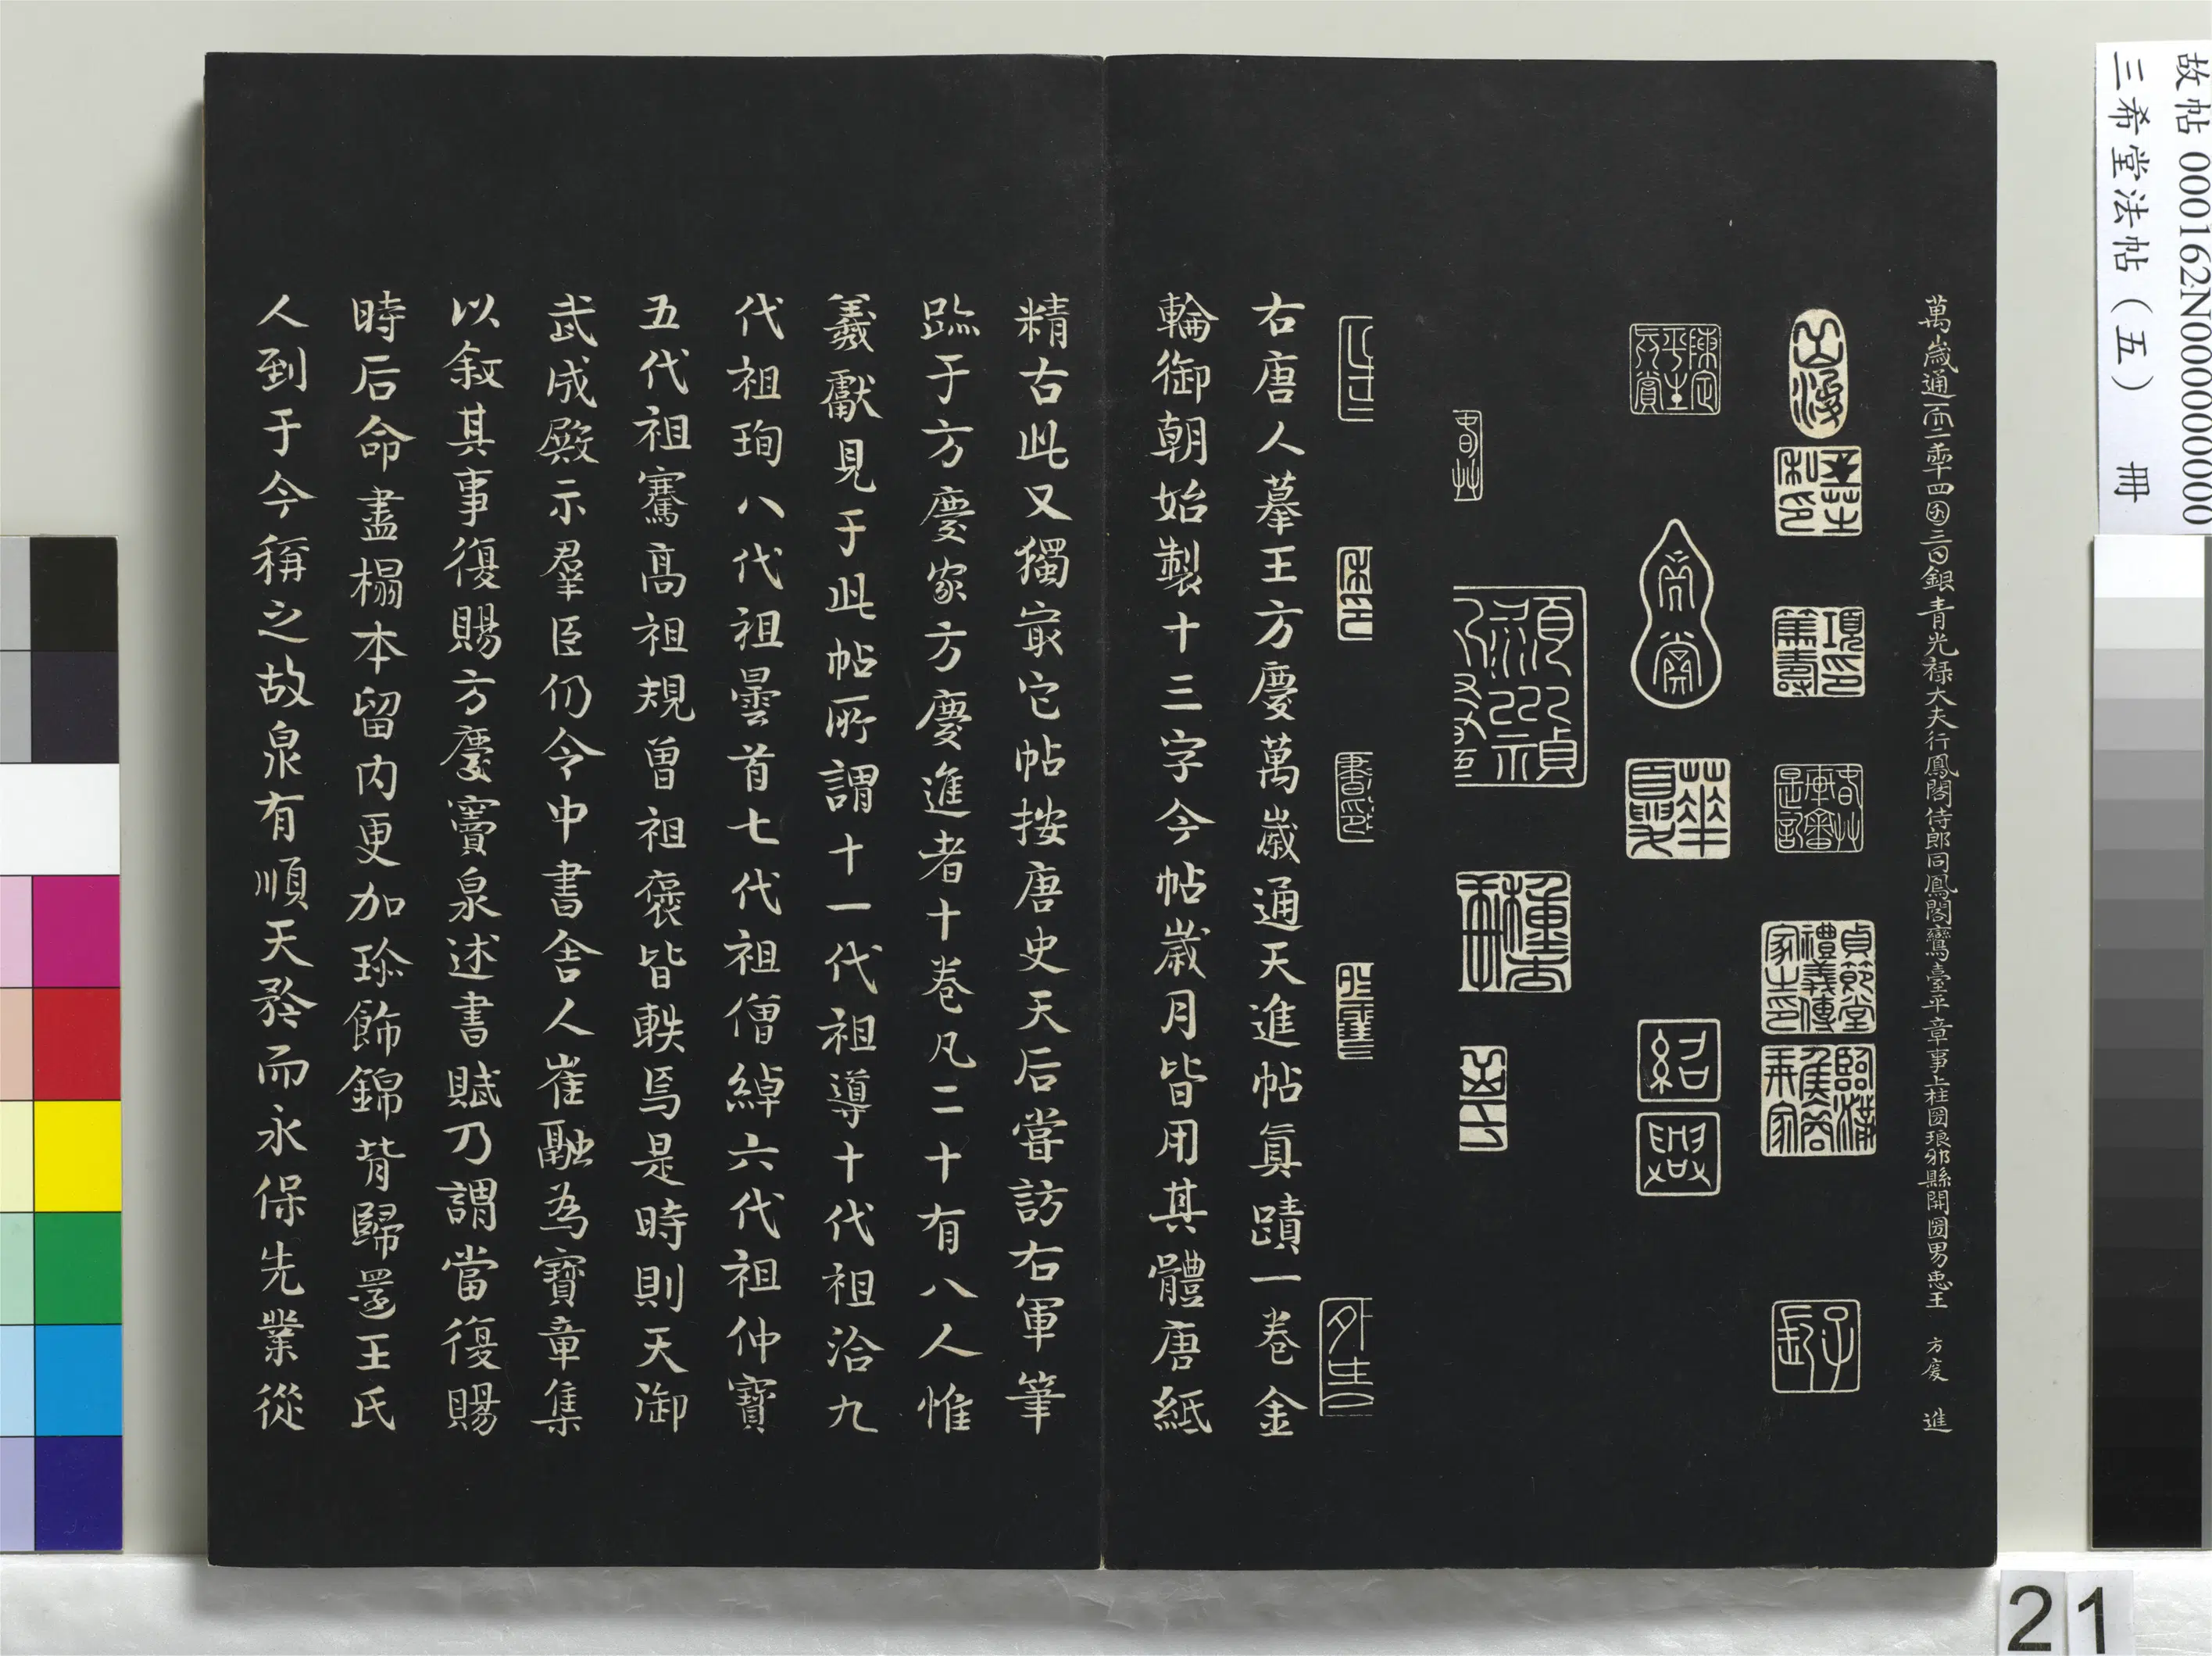 故帖 000162N000000000
三希堂法帖（五） 冊
萬歲通天二年四月三日銀青光祿大夫行鳳閣侍郎同鳳閣鸞臺平章事上柱國琅邪縣開國男臣王 方慶 進
右唐人摹王方慶萬歲通天進帖真蹟一卷金
輪御朝始製十三字今帖歲月皆用其體唐紙
精古此又獨冣它帖按唐史天后嘗訪右軍筆
跡于方慶家方慶進者十卷凡二十有八人惟
羲獻見于此帖所謂十一代祖導十代祖洽九
代祖珣八代祖曇首七代祖僧綽六代祖仲寶
五代祖騫高祖規曾祖褒皆軼焉是時則天御
武成殿示羣臣仍令中書舍人崔融為寶章集
以敘其事復賜方慶竇泉述書賦乃謂當復賜
時后命盡榻本留內更加珍飾錦背歸還王氏
人到于今稱之故泉有順天矜而永保先業從
21